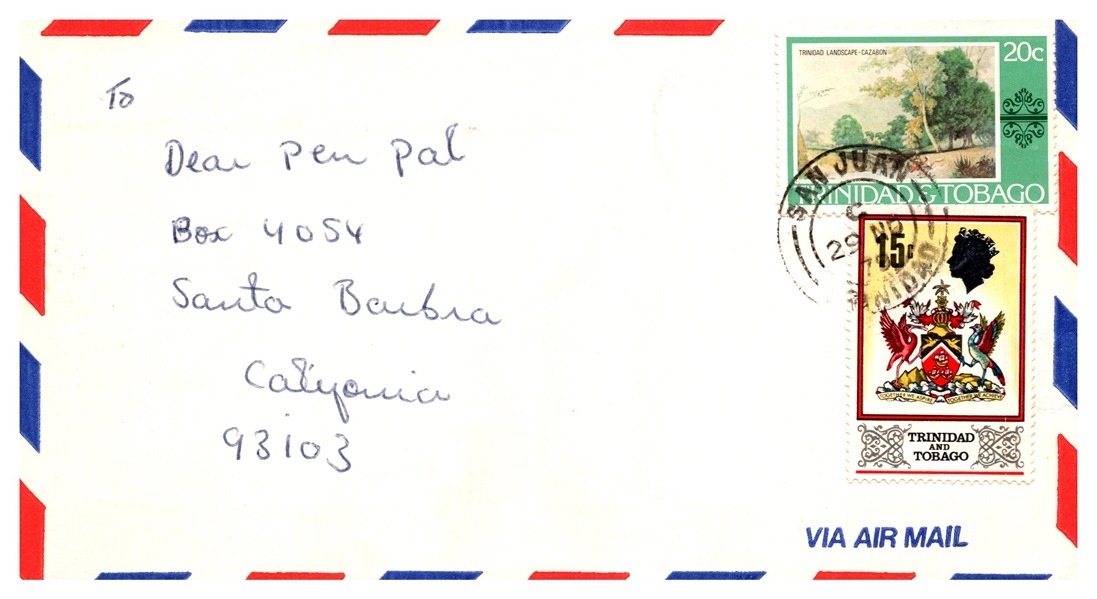 To
Dear Pen Pal
Box 4054
Santa Barbra
Califonia
93103
TRINIDAD LANDSCAPE-CAZABON
20c
TRINIDAD & TOBAGO
SAN JUAN
C
29 NO
TRINIDAD
15c
TOGETHER WE ASPIRE TOGETHER WE ACHIEVE
TRINIDAD
AND
TOBAGO
VIA AIR MAIL